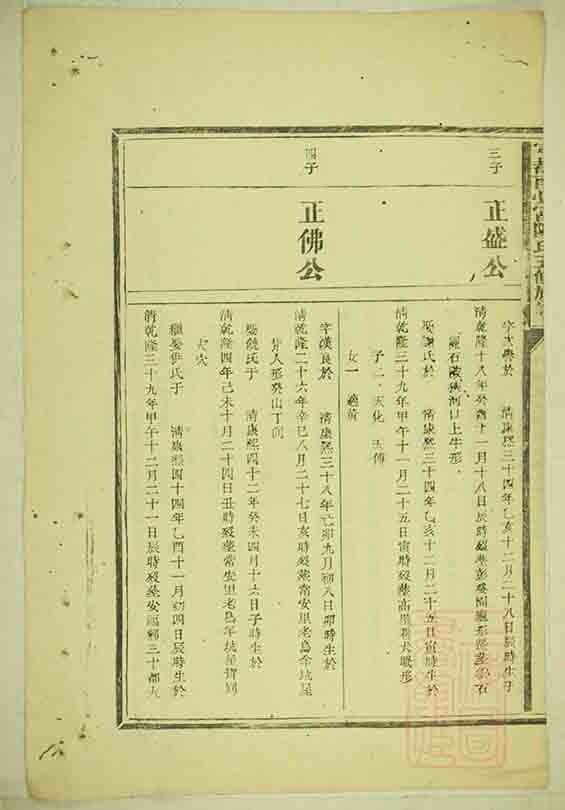 三子
正盛公
字大興於 清康熙三十四年乙亥十二月二十八日辰時生于
清乾隆十八年癸酉十一月十八日辰時殁葬彭
石陂狹河口上牛形
娶謝氏於 清康熙三十四年乙亥十二月二十五日寅時生於
清乾隆三十九年甲午十一月二十五日寅時殁葬高犬眠形
子二 天化 天傳
女一 適黃
四子
正佛公
字漢良於 清康熙三十八年己卯九月初八日卯時生於
清乾隆二十六年辛巳八月二十七日亥時殁葬常安里老烏佘坑屋
背人形癸山丁向
娶饒氏于 清康熙四十二年癸未四月十六日子時生於
清乾隆四年己未十月二十四日丑時殁葬常安里老烏佘坑屋背同
大穴
繼娶尹氏于 清康熙四十四年乙酉十一月初四日辰時生於
清乾隆三十九年甲午十二月二十一日辰時殁葬安福鄉三十都九